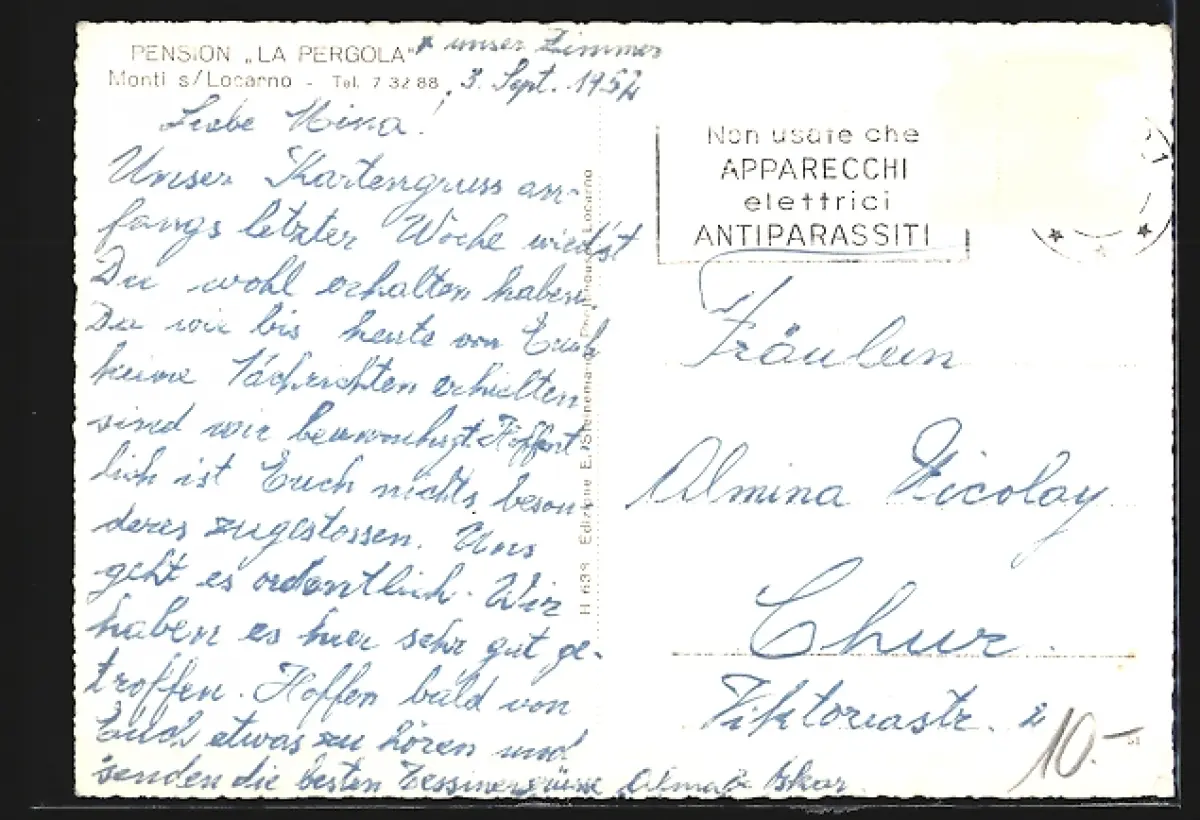 PENSION „LA PERGOLA" * unser Zimmer
Monti s/Locarno - Tel. 7 32 88, 3. Sept. 1952
Liebe Mina!
Unser Kartengruss an-
fangs letzter Woche wirst
Du wohl erhalten haben.
Da wir bis heute von Euch
keine Nachrichten erhielten
sind wir beunruhigt. Hoffent
lich ist Euch nichts beson
deres zugestossen. Uns
geht es ordentlich. Wir
haben es hier sehr gut ge-
troffen. Hoffen bald von
Euch etwas zu hören und
senden die besten Tessinergrüsse Alma & Oskar
H 638 Edizione E. Steinemann Locarno
Non usate che
APPARECCHI
elettrici
ANTIPARASSITI
Fräulein
Almina Nicolay
Chur.
Viktoriastr. 2
10.-